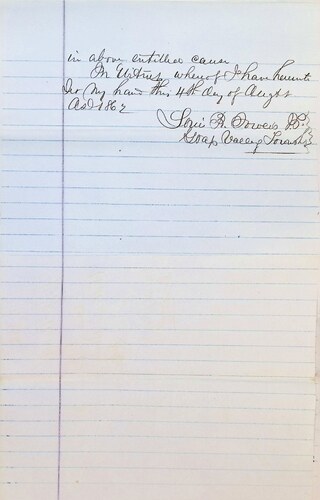 in above entitled cause
In Witness whereof I have hereunto
Set my hand this 4th day of August
AD 1862
Powers J.P.
Soap Valley Township